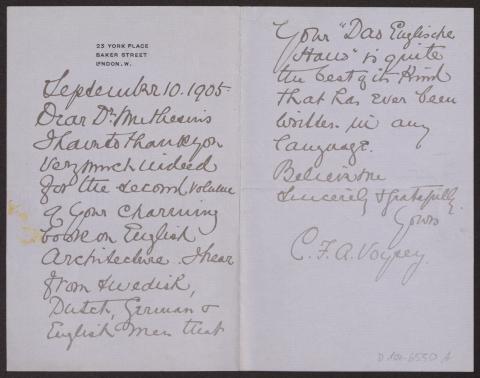 23 YORK PLACE
BAKER STREET
LONDON. W.
September 10. 1905.
Dear Dr. Muthesius
I have to thank you
very much indeed
for the second volume
of your charming
book on English
Architecture. I hear
from Swedish,
Dutch, German &
English men that
Your "Das Englische
Haus" is quite
the best of its kind
that has ever been
written in any
language.
Believe me
Sincerely & gratefully
Yours
C. F. A. Voysey.
D 102-6550 A